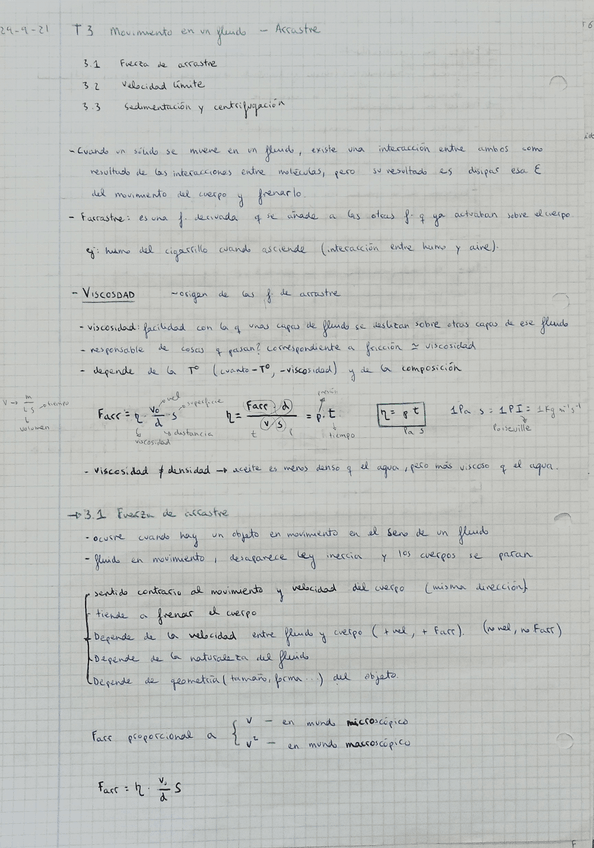 24-9-21 T3 Movimiento en un fluido - Arrastre
3.1 Fuerza de arrastre
3.2 Velocidad límite
3.3 Sedimentación y centrifugación
- Cuando un sólido se mueve en un fluido, existe una interacción entre ambos como
resultado de las interacciones entre moléculas, pero su resultado es disipar esa E
del movimiento del cuerpo y frenarlo.
- Farrastre: es una f. derivada q se añade a las otras f. q ya actuaban sobre el cuerpo.
ej: humo del cigarrillo cuando asciende (interacción entre humo y aire).
- VISCOSDAD - origen de las f. de arrastre
- viscosidad: facilidad con la q unas capas de fluido se deslizan sobre otras capas de ese fluido
- responsable de cosas q pasan? correspondiente a fricción ≃ viscosidad
- depende de la Tº (cuanto + Tº, - viscosidad) y de la composición
Farr = η · v₀/d · s η = Farr · d / (v · s) = p · t η = p t 1 Pa s = 1 PI = 1 Kg m⁻¹ s⁻¹
vel superficie distancia viscosidad tiempo Pa s Poiseuille
volumen
- viscosidad ≠ densidad → aceite es menos denso q el agua, pero más viscoso q el agua.
→ 3.1 Fuerza de arrastre
- ocurre cuando hay un objeto en movimiento en el seno de un fluido
- fluido en movimiento, desaparece ley inercia y los cuerpos se paran
sentido contrario al movimiento y velocidad del cuerpo (misma dirección)
tiende a frenar el cuerpo
Depende de la velocidad entre fluido y cuerpo (+ vel, + Farr). (no vel, no Farr)
Depende de la naturaleza del fluido
Depende de geometría (tamaño, forma...) del objeto.
Farr proporcional a { v - en mundo microscópico
v² - en mundo macroscópico
Farr = η · v₀/d S